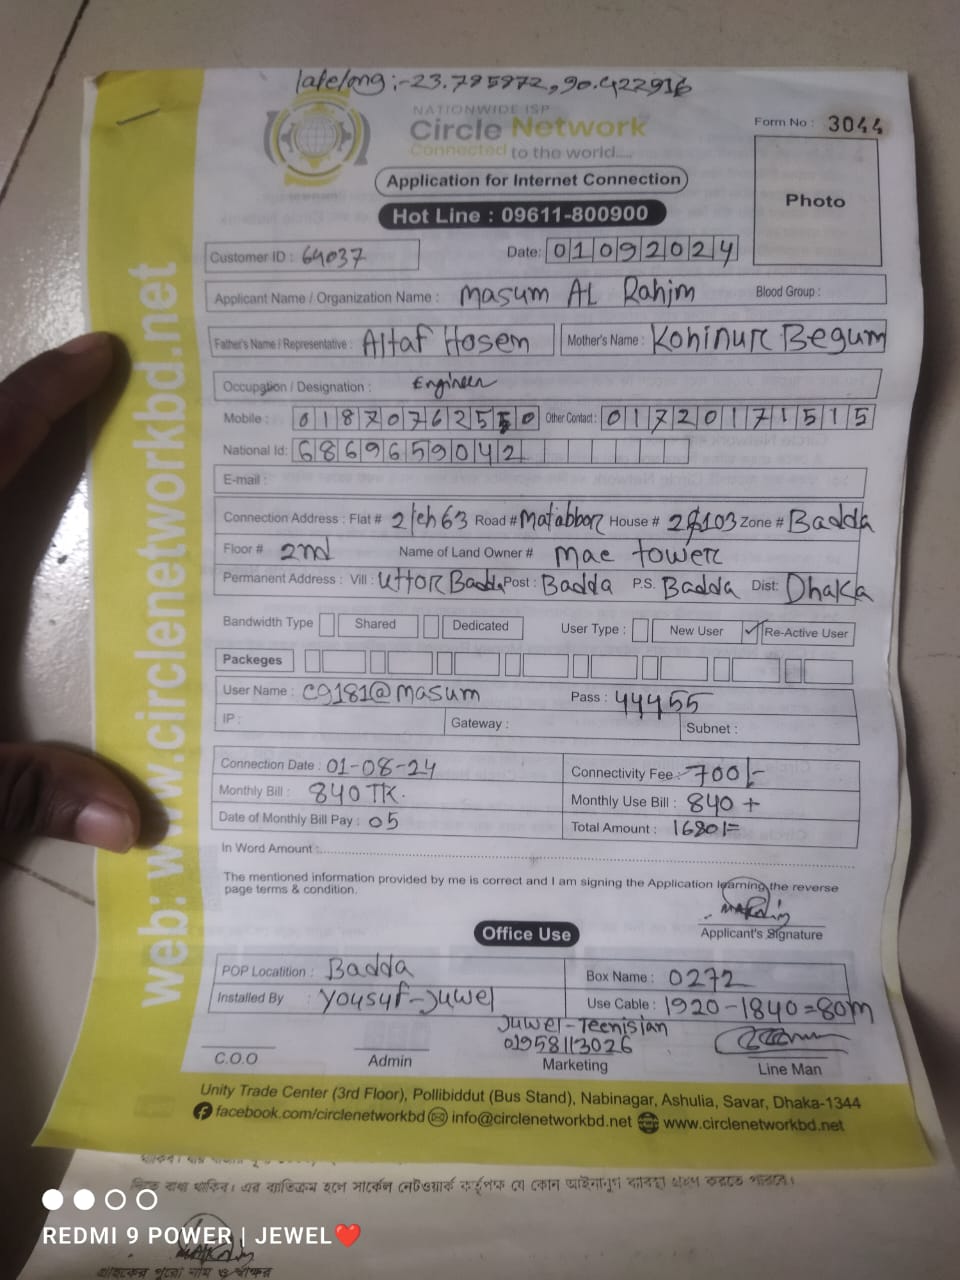 latelong:-23.795972,90.422916
NATIONWIDE ISP
Circle Network
Connected to the world....
Form No : 3044
Photo
Application for Internet Connection
Hot Line : 09611-800900
Customer ID : 64037
Date: 01092024
Applicant Name / Organization Name : Masum AL Rahim
Blood Group :
Father's Name / Representative : Altaf Hosen
Mother's Name : Kohinur Begum
Occupation / Designation : Engineer
Mobile : 01870762550
Other Contact : 01720171515
National Id: 6869659042
E-mail :
Connection Address : Flat # 2/ch 63 Road # Matabbor House # 103 Zone # Badda
Floor # 2nd Name of Land Owner # Mae tower
Permanent Address : Vill : Uttor Badda Post : Badda P.S. Badda Dist: Dhaka
Bandwidth Type Shared Dedicated User Type : New User ✓ Re-Active User
Packeges
User Name : c9181@masum Pass : 44455
IP : Gateway : Subnet :
Connection Date : 01-08-24 Connectivity Fee :- 700/-
Monthly Bill : 840 TK. Monthly Use Bill : 840 +
Date of Monthly Bill Pay : 05 Total Amount : 1680/=
In Word Amount :
The mentioned information provided by me is correct and I am signing the Application learning the reverse
page terms & condition.
Applicant's Signature
Office Use
POP Locatition : Badda Box Name : 0272
Installed By : Yousuf-Juwel Use Cable : 1920-1840=80m
Juwel-Teenisian
01958113026
C.O.O Admin Marketing Line Man
Unity Trade Center (3rd Floor), Pollibiddut (Bus Stand), Nabinagar, Ashulia, Savar, Dhaka-1344
facebook.com/circlenetworkbd info@circlenetworkbd.net www.circlenetworkbd.net
web: www.circlenetworkbd.net
দিতে বাধ্য থাকিব। এর ব্যতিক্রম হলে সার্কেল নেটওয়ার্ক কর্তৃপক্ষ যে কোন আইনানুগ ব্যবস্থা গ্রহণ করতে পারবে।
REDMI 9 POWER | JEWEL❤️
গ্রাহকের পুরো নাম ও স্বাক্ষর